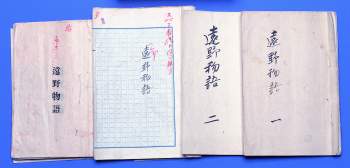 遠野物語
遠野物語
遠野物語
二
遠野物語
一